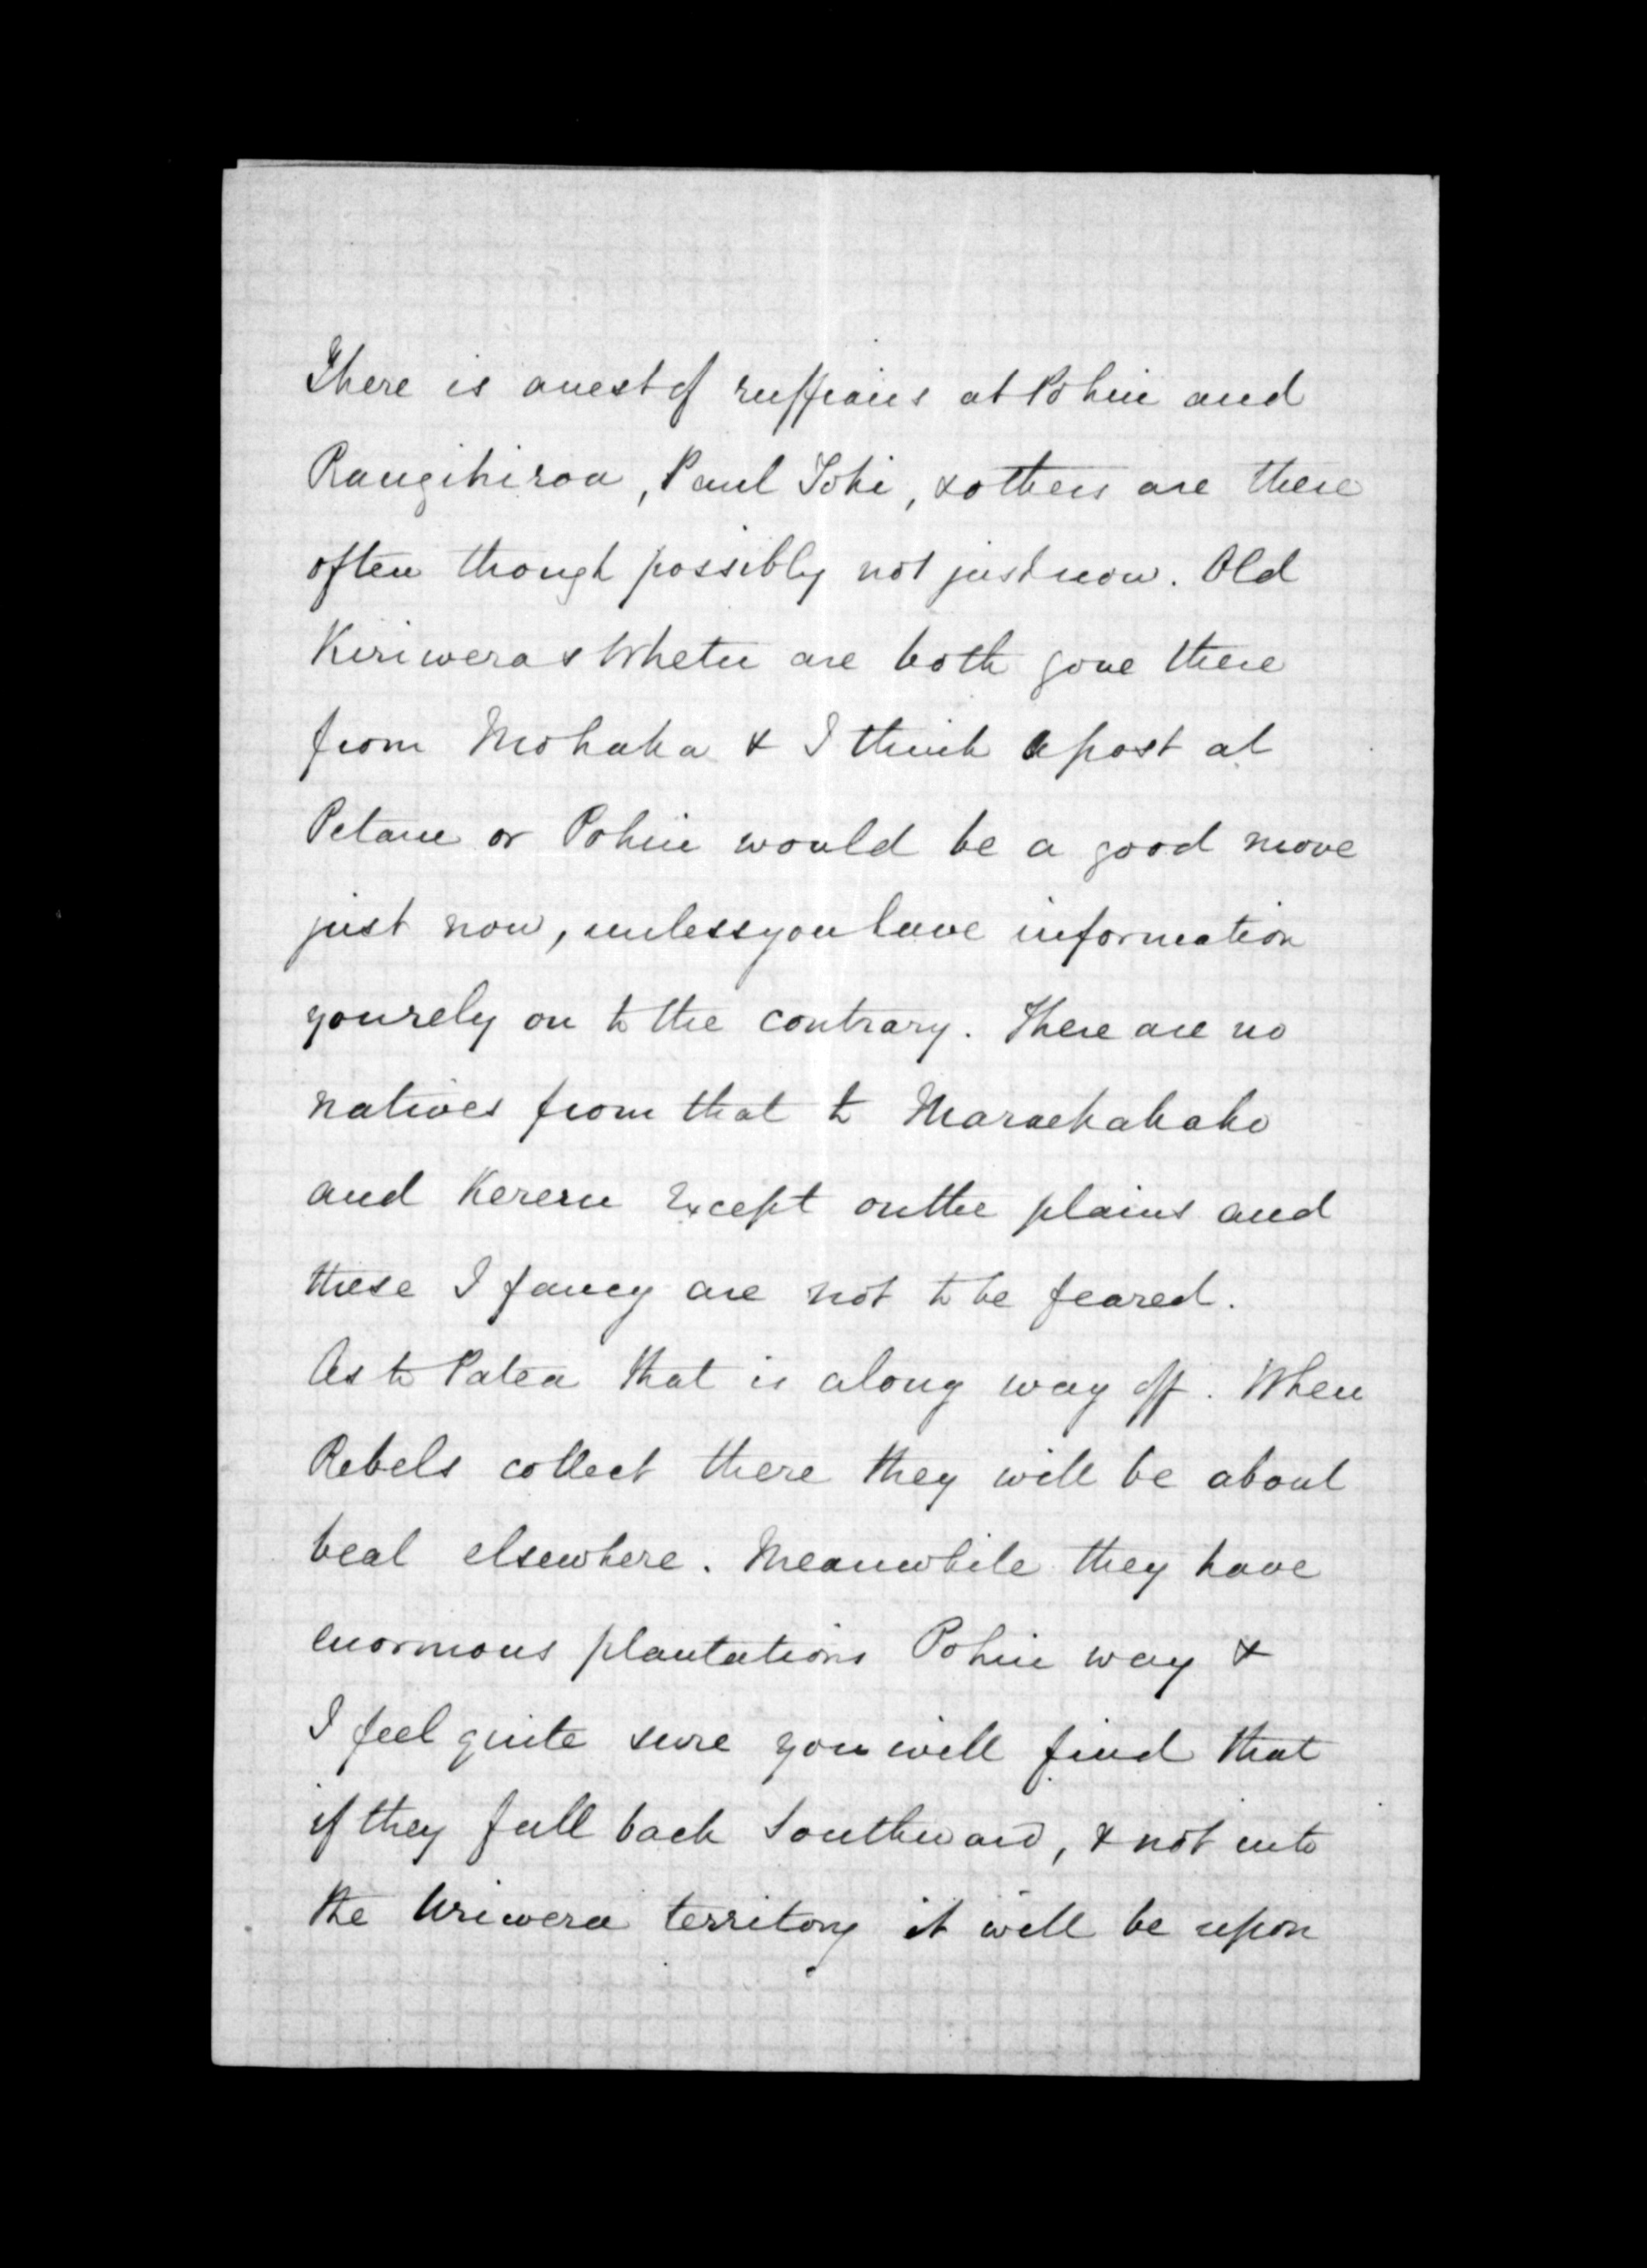 There is a nest of ruffians at Pohui and
Rangihiroa, Paul Toki, & others are there
often though possibly not just now. Old
Keriwera & Whetu are both gone there
from Mohaka & I think a post at
Petane or Pohui would be a good move
just now, unless you have information
you rely on to the contrary. There are no
natives from that to Maraekakaho
and Kereru except on the plains and
these I fancy are not to be feared.
As to Patea that is a long way off. When
Rebels collect there they will be about
beat elsewhere. Meanwhile they have
enormous plantations Pohui way &
I feel quite sure you will find that
if they fall back Southward, & not into
the Uriwera territory it will be upon